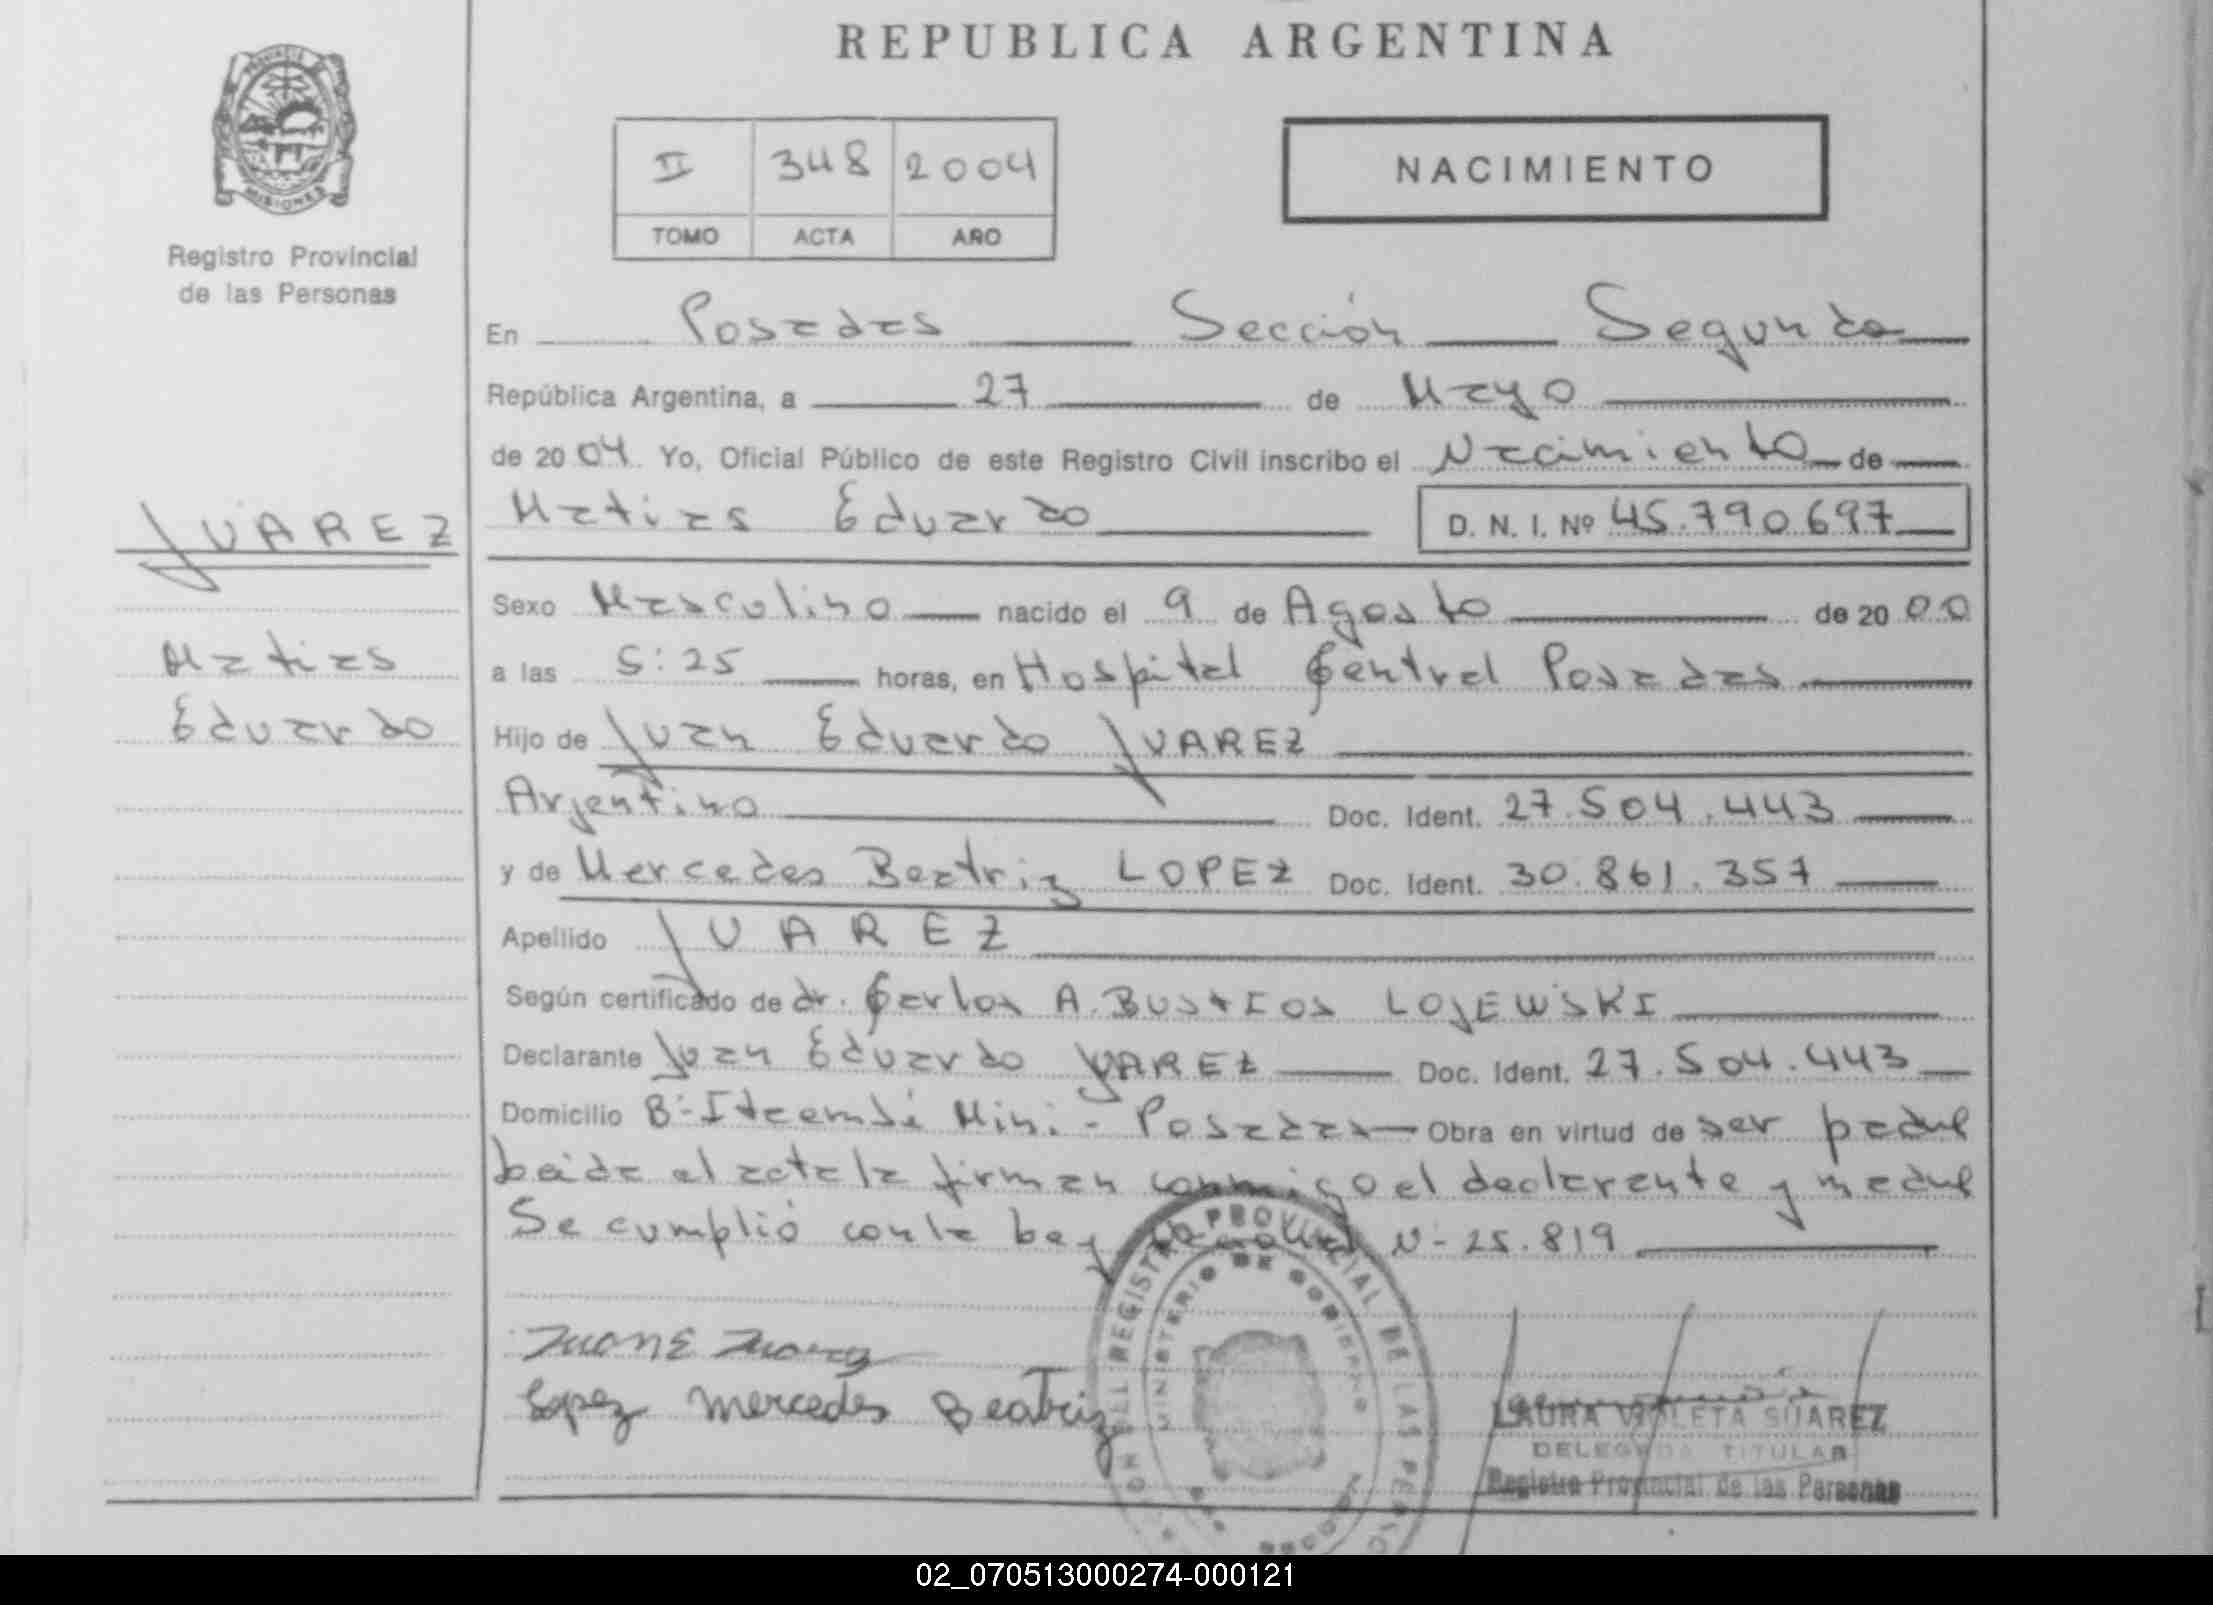 REPUBLICA ARGENTINA
PROVINCIA DE MISIONES
Registro Provincial
de las Personas
II 348 2004
TOMO ACTA AÑO
NACIMIENTO
En Posadas Sección Segunda
República Argentina, a 27 de Mayo
de 2004 Yo, Oficial Público de este Registro Civil inscribo el Nacimiento de
Matias Eduardo D. N. I. Nº 45.790.697
JUAREZ
Matias
Eduardo
Sexo Masculino nacido el 9 de Agosto de 2000
a las 5:25 horas, en Hospital Central Posadas
Hijo de Juan Eduardo JUAREZ
Argentino Doc. Ident. 27.504.443
y de Mercedes Beatriz LOPEZ Doc. Ident. 30.861.357
Apellido JUAREZ
Según certificado de dr. Carlos A. BUSTIOS LOJEWSKI
Declarante Juan Eduardo JUAREZ Doc. Ident. 27.504.443
Domicilio Bº Itaembé Mini - Posadas Obra en virtud de ser padre
Leida el acta la firman conmigo el declarante y madre
Se cumplió con la Ley Nº 25.819
Lopez Mercedes Beatriz
REGISTRO PROVINCIAL DE LAS
MINISTERIO DE GOBIERNO
LAURA VIOLETA SUAREZ
DELEGADA TITULAR
Registro Provincial de las Personas
02_070513000274-000121